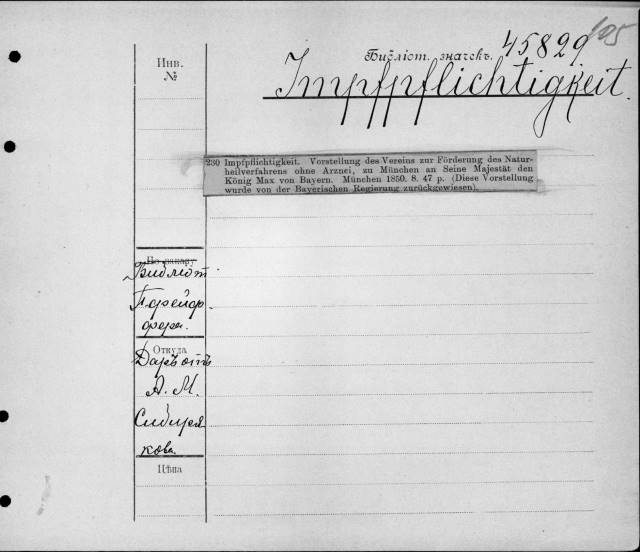 105
45829
Библіот. значекъ.
Impfpflichtigkeit.
Инв.
№
230 Impfpflichtigkeit. Vorstellung des Vereins zur Förderung des Natur-
heilverfahrens ohne Arznei, zu München an Seine Majestät den
König Max von Bayern. München 1850. 8. 47 p. (Diese Vorstellung
wurde von der Bayerischen Regierung zurückgewiesen).
Библіот
Откуда
Даръ отъ
А. М.
Сибиря
кова.
Цѣна